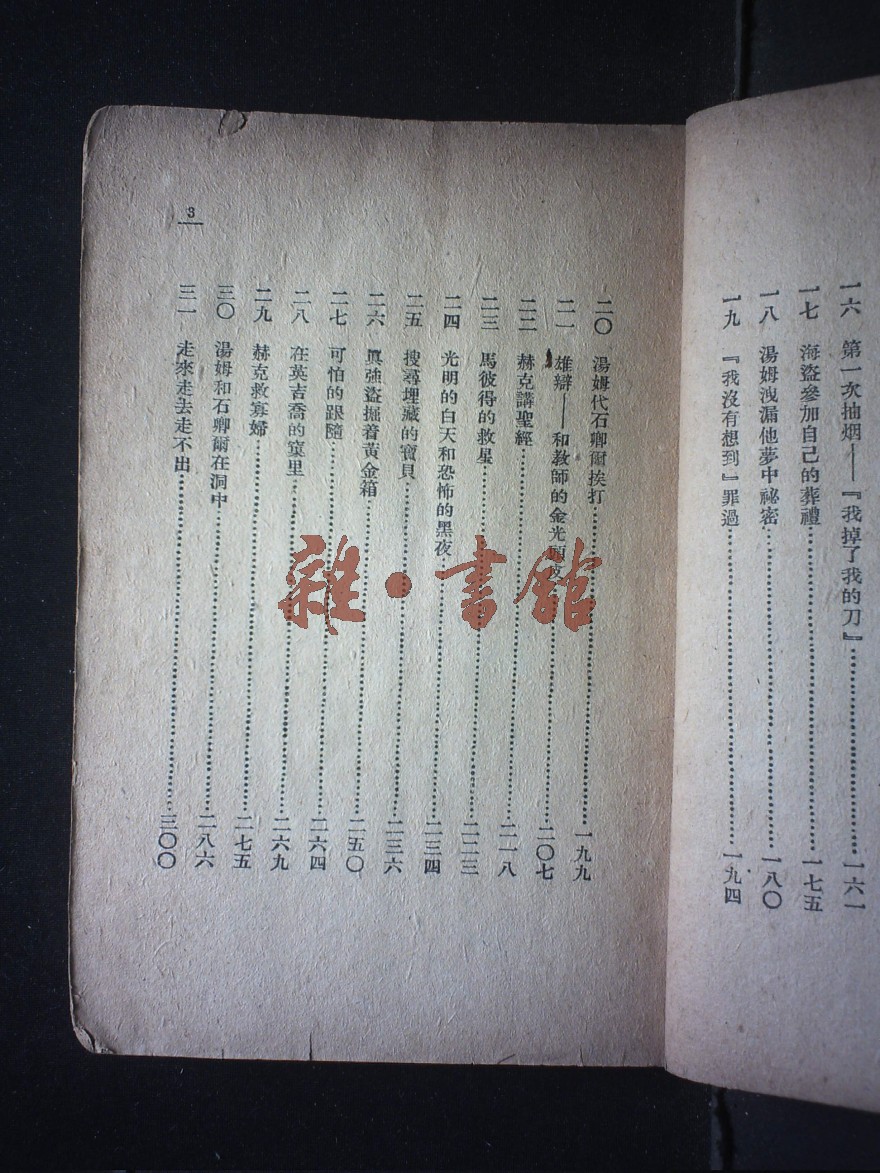 一六 第一次抽烟——『我掉了我的刀』……一六一
一七 海盜參加自己的葬禮……一七五
一八 湯姆洩漏他夢中祕密……一八〇
一九 『我沒有想到』罪過……一九四
二〇 湯姆代石卿爾挨打……一九九
二一 雄辯——和教師的金光頭皮……二〇七
二二 赫克講聖經……二一八
二三 馬彼得的救星……二二三
二四 光明的白天和恐怖的黑夜……二三四
二五 搜尋埋藏的寶貝……二三六
二六 眞強盜掘着黃金箱……二五〇
二七 可怕的跟隨……二六四
二八 在英吉喬的窠里……二六九
二九 赫克救寡婦……二七五
三〇 湯姆和石卿爾在洞中……二八六
三一 走來走去走不出……三〇〇
3
雜·書館